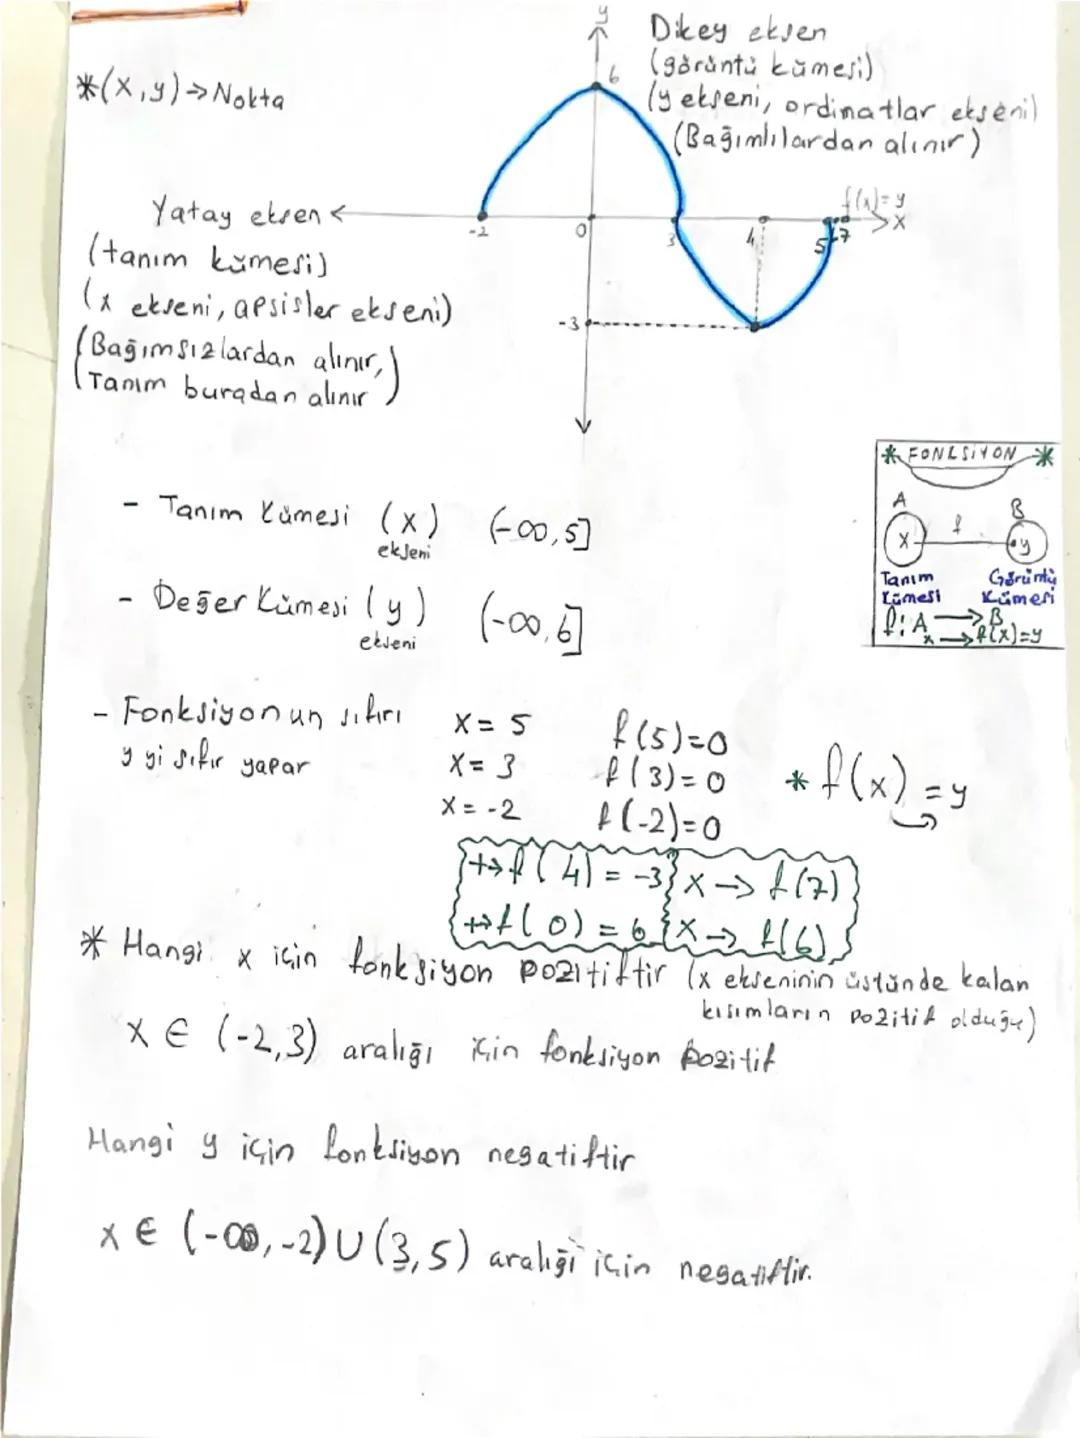 y
6
Dikey eksen
(görüntü kümesi)
(y ekseni, ordinatlar ekseni)
(Bağımlılardan alınır)
*(x,y)→Nokta
f(x)=y
x
Yatay eksen
-2
0
3
4
5
7
-3
(tanım kümesi)
(x ekseni, apsisler ekseni)
(Bağımsızlardan alınır,
Tanım buradan alınır)
* FONKSİYON *
A
B
x
f
y
Tanım Kümesi
Görüntü Kümesi
f: A → B
x → f(x)=y
- Tanım Kümesi (x) (-∞,5]
ekseni
- Değer Kümesi (y) (-∞,6]
ekseni
- Fonksiyonun sıfırı x = 5 f(5)=0
y yi sıfır yapar x = 3 f(3)=0
x = -2 f(-2)=0
* f(x) = y
+→ f(4) = -3 x → f(7)
+→ f(0) = 6 x → f(6)
* Hangi x için fonksiyon pozitiftir (x ekseninin üstünde kalan
kısımların pozitif olduğu)
x ∈ (-2,3) aralığı için fonksiyon pozitif
Hangi y için fonksiyon negatiftir
x ∈ (-∞,-2) U (3,5) aralığı için negatiftir.